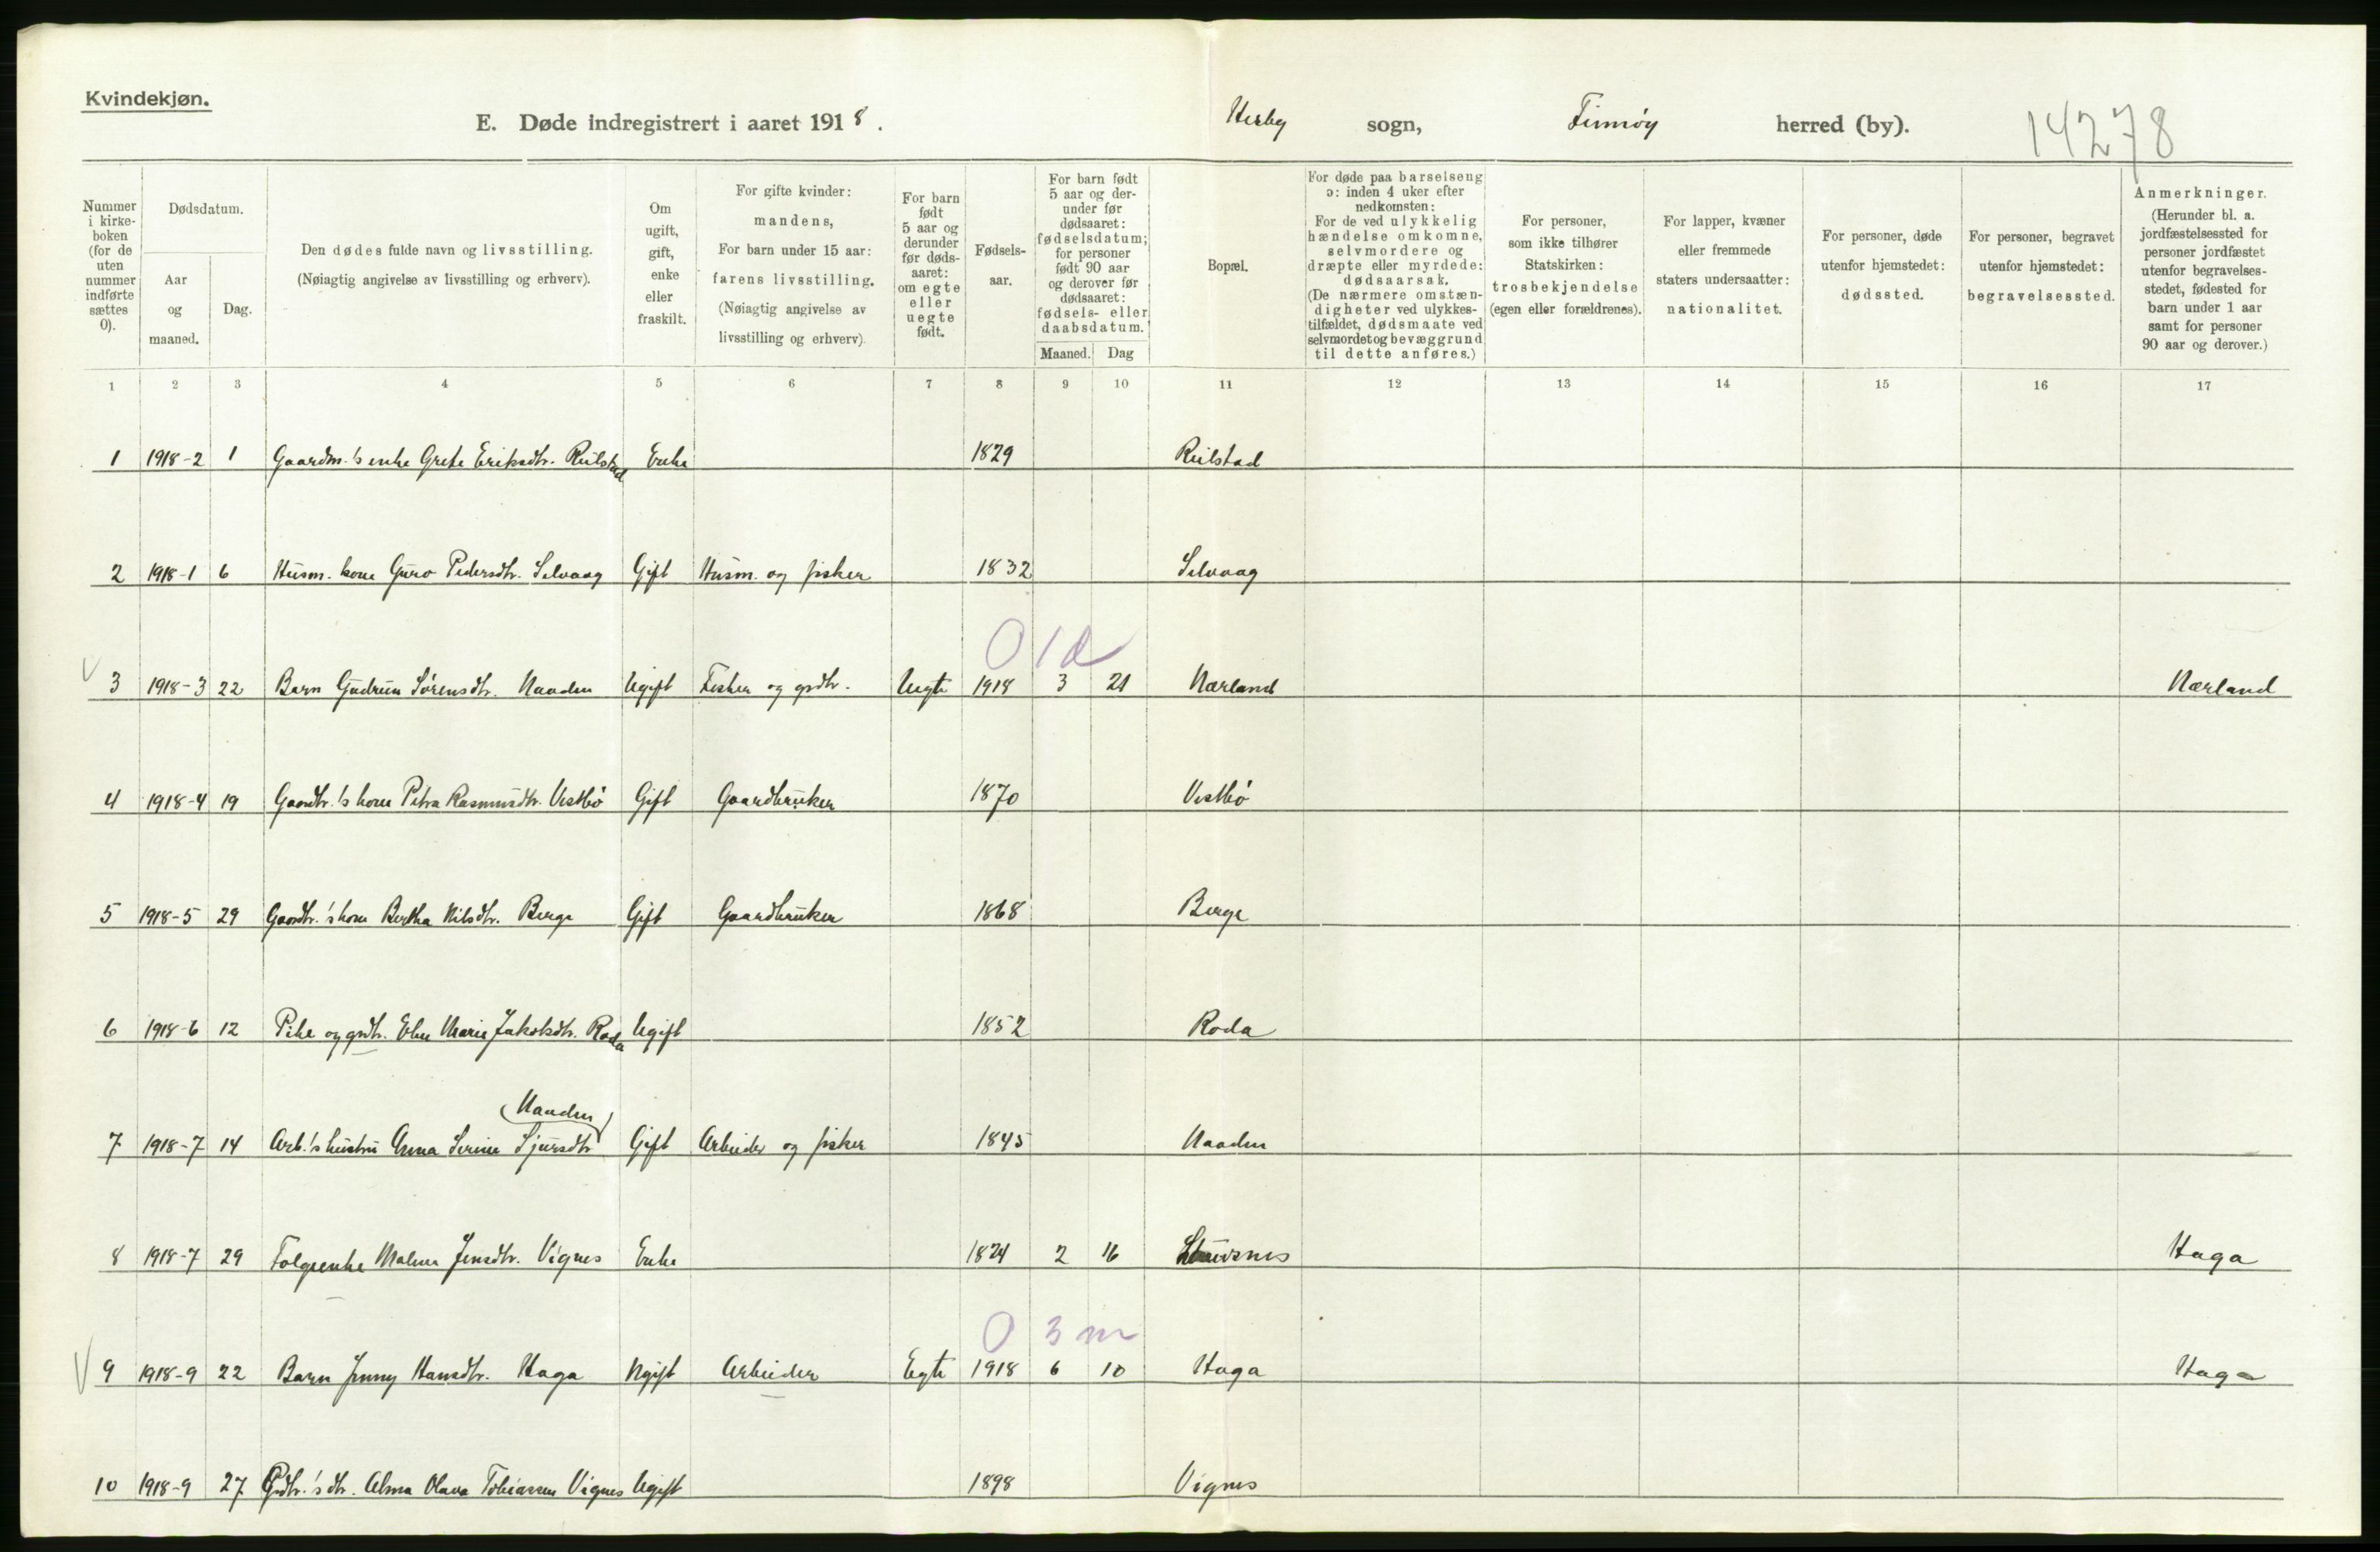 Kvindekjøn.
E. Døde indregistrert i aaret 1918. Hesby sogn, Finnøy herred (by). 14278
Nummer i kirke-boken (for de uten nummer indførte sættes 0).
Dødsdatum.
Aar og maaned.
Dag.
Den dødes fulde navn og livsstilling.
(Nøiagtig angivelse av livsstilling og erhverv).
Om ugift, gift, enke eller fraskilt.
For gifte kvinder: mandens, For barn under 15 aar: farens livsstilling. (Nøiagtig angivelse av livsstilling og erhverv).
For barn født 5 aar og derunder før døds-aaret: om egte eller uegte født.
Fødsels-aar.
For barn født 5 aar og der-under før dødsaaret: fødselsdatum; for personer født 90 aar og derover før dødsaaret: fødsels- eller daabsdatum.
Maaned. Dag
Bopæl.
For døde paa barselseng ɔ: inden 4 uker efter nedkomsten: For de ved ulykkelig hændelse omkomne, selvmordere og dræpte eller myrdede: dødsaarsak. (De nærmere omstæn-digheter ved ulykkes-tilfældet, dødsmaate ved selvmordet og bevæggrund til dette anføres.)
For personer, som ikke tilhører Statskirken: trosbekjendelse (egen eller forældrenes).
For lapper, kvæner eller fremmede staters undersaatter: nationalitet.
For personer, døde utenfor hjemstedet: dødssted.
For personer, begravet utenfor hjemstedet: begravelsessted.
Anmerkninger. (Herunder bl. a. jordfæstelsessted for personer jordfæstet utenfor begravelses-stedet, fødested for barn under 1 aar samt for personer 90 aar og derover.)
1 2 3 4 5 6 7 8 9 10 11 12 13 14 15 16 17
1 1918-2 1 Gaardm.'s enke Grete Eriksdtr. Reilstad Enke 1829 Reilstad
2 1918-1 6 Husm. kone Guro Pedersdtr. Selvaag Gift Husm. og fisker 1832 Selvaag
0 1 d
3 1918-3 22 Barn Gudrun Sørensdtr. Naaden Ugift Fisker og grdbr. Uegte 1918 3 21 Nærland Nærland
4 1918-4 19 Gaardbr.'s kone Petra Rasmusdtr. Vestbø Gift Gaardbruker 1870 Vestbø
5 1918-5 29 Gaardbr.'s kone Bertha Nilsdtr. Berge Gift Gaardbruker 1868 Berge
6 1918-6 12 Pike og grdbr. Elen Marie Jakobsdtr. Roda Ugift 1852 Roda
(Naaden)
7 1918-7 14 Arb.'s hustru Anna Serine Sjursdtr Gift Arbeider og fisker 1845 Naaden
8 1918-7 29 Folgeenke Malene Jensdtr. Vignes Enke 1824 2 16 Haga
0 3 m
9 1918-9 22 Barn Jenny Hansdtr. Haga Ugift Arbeider Egte 1918 6 10 Haga Haga
10 1918-9 27 Grdbr.'s dtr. Alma Olava Tobiassen Vignes Ugift 1898 Vignes